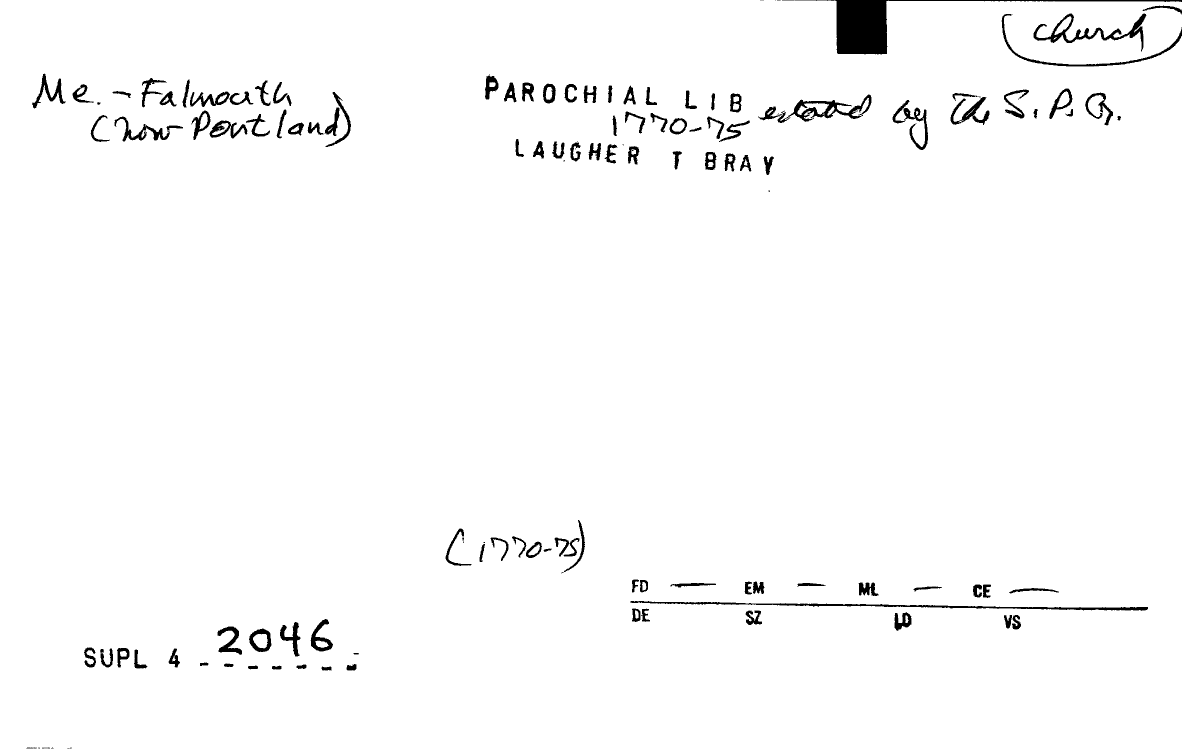 church
Me. - Falmouth
(now Portland)
PAROCHIAL LIB estated by the S. P. G.
1770-75
LAUGHER T BRAY
(1770-75)
FD — EM — ML — CE —
DE SZ LD VS
SUPL 4 2046